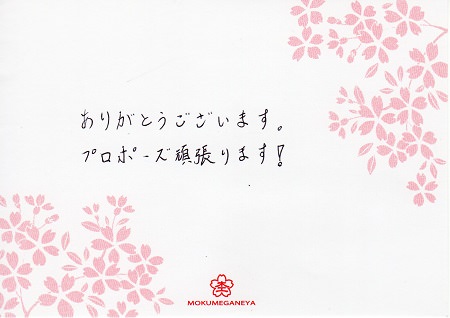 ありがとうございます。
プロポーズ頑張ります!
MOKUMEGANEYA